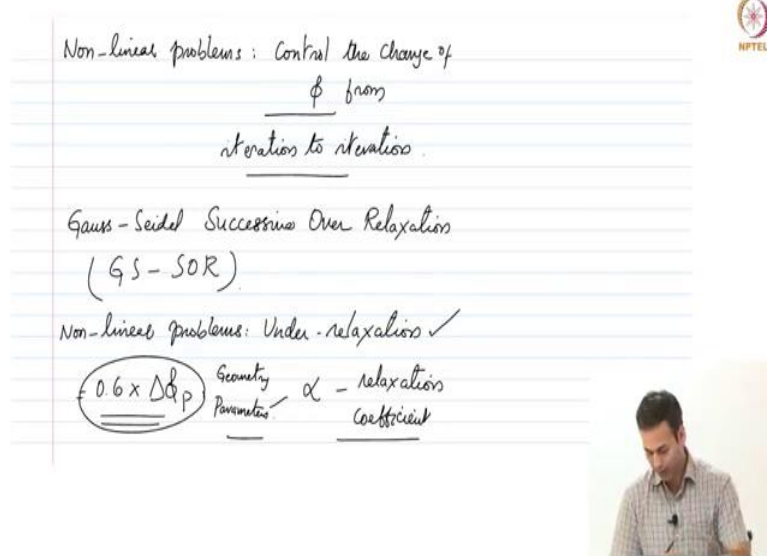 Non-linear problems : Control the change of
ϕ from
iteration to iteration.
Gauss-Seidel Successive Over Relaxation
(GS-SOR)
Non-linear problems: Under-relaxation ✓
= 0.6 × Δϕ_P Geometry Parameters α - relaxation
coefficient
NPTEL